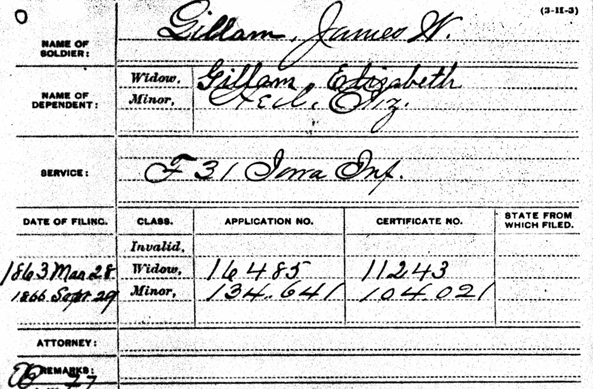 (3-11-3)
NAME OF SOLDIER: Gillam, James W.
NAME OF DEPENDENT: Widow, Gillam, Elizabeth
Minor, Eliz.
SERVICE: F 31 Iowa Inf.
DATE OF FILING. CLASS. APPLICATION NO. CERTIFICATE NO. STATE FROM WHICH FILED.
Invalid,
1863. Mar. 28 Widow, 16485 11243
1866. Sept. 29 Minor, 134.641 104.021
ATTORNEY:
REMARKS: